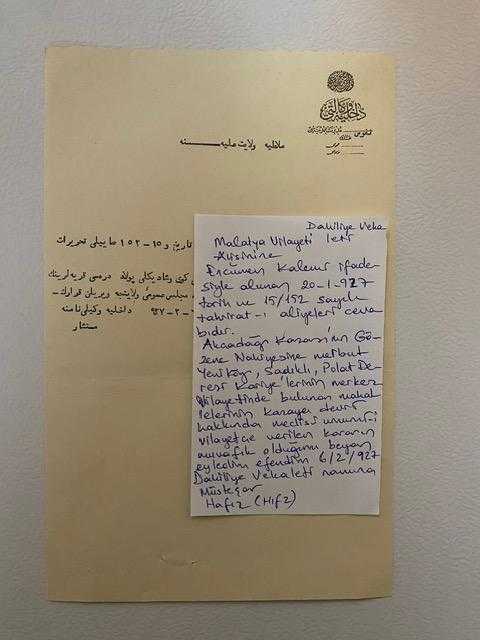 داخلیه وکالتی
ملاطیه ولایت علیه سنه
تاریخ و ١٥-١٥٢ صاییلی تحریرات
کوی و شادیکلی پولاد دره سی قریه لرینک
مجلس عمومئ ولایتجه ویریلن قرارک
٩٢٧-٢-٦ داخلیه وکیلی نامنه
مستشار
Dahiliye Veka
Malatya Vilayeti leti
Aliyesine
Encümen Kalemi ifade
siyle alınan 20-1-927
tarih ve 15/152 sayılı
tahrirat-ı aliyeleri ceva
bıdır.
Akçadağı Kazası'nın Gö-
zene Nahiyesine merbut
Yeniköy, Sadıklı, Polat De-
resi Kariye'lerinin merkez
vilayetinde bulunan mahal
lelerinin kazaya devri
hakkında meclisi umumi-i
vilayetçe verilen kararın
muvafık olduğunu beyan
eyledim efendim 6/2/927
Dahiliye Vekaleti namına
Müsteşar
Hafız (Hıfz)